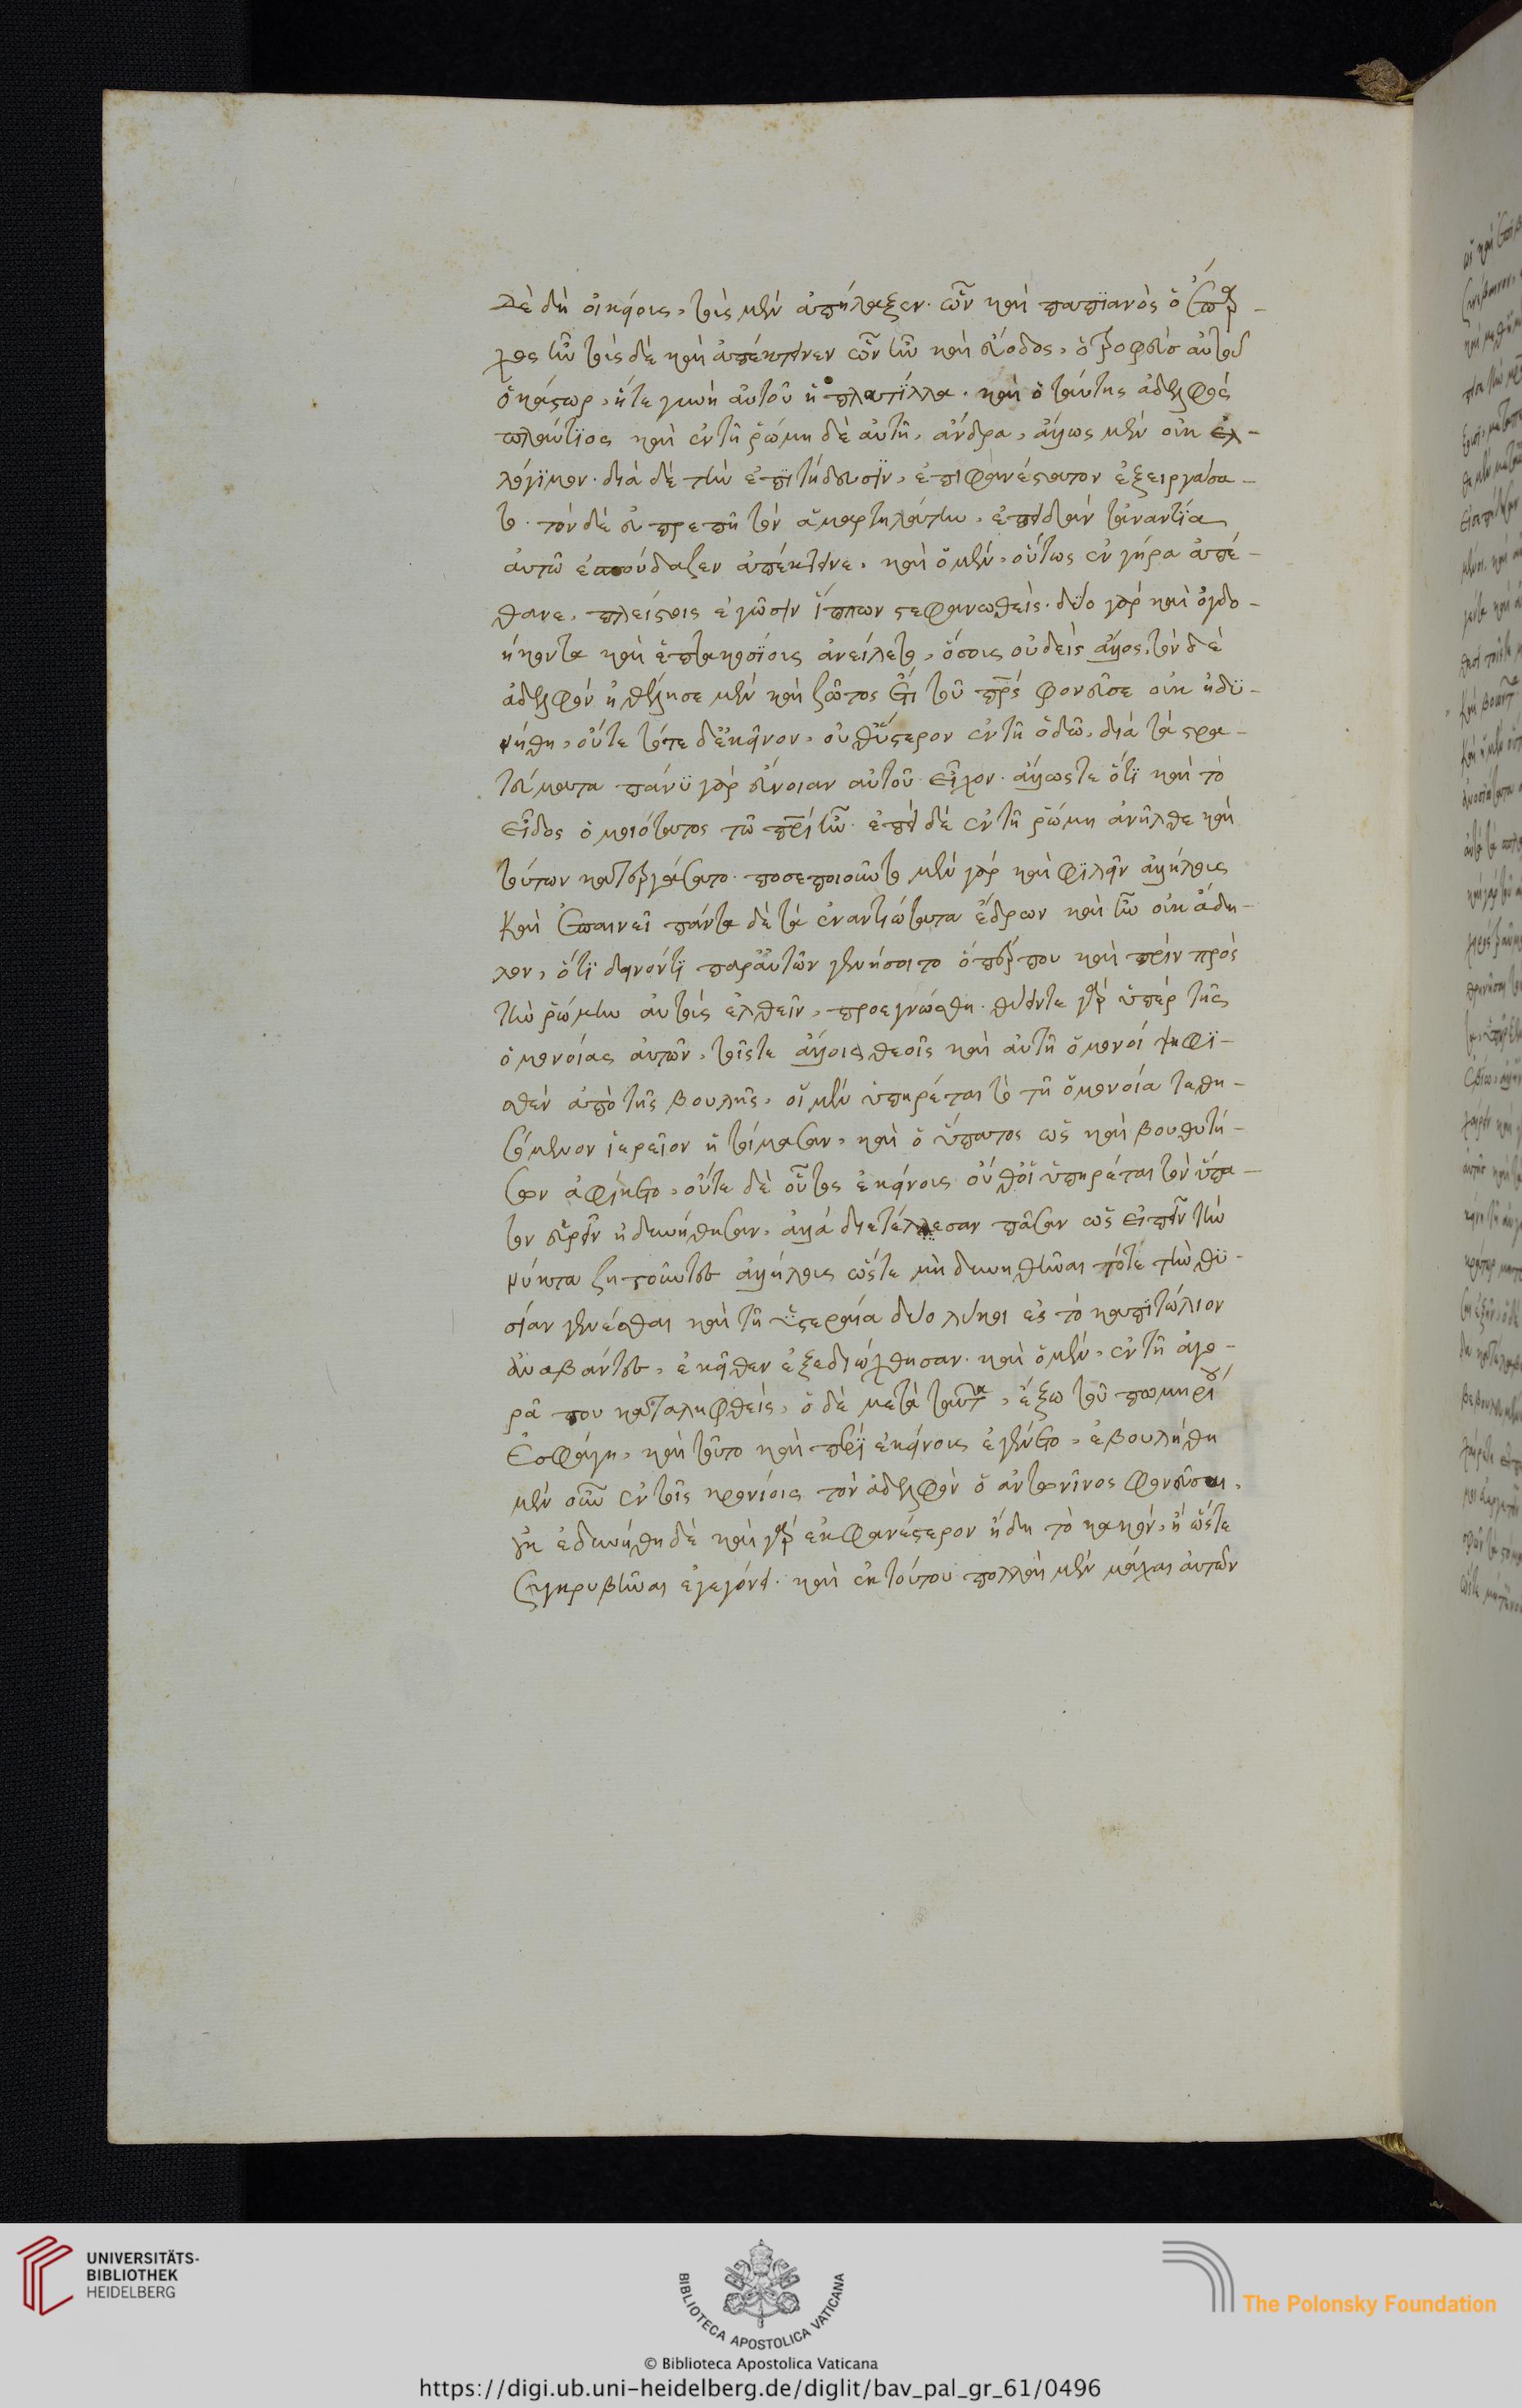 δὲ δὴ οἰκείοις, τοὺς μὲν ἀπήλαξεν. ὧν καὶ παπϊανὸς ὁ ἔπαρ-
χος ἦν τοὺς δὲ καὶ ἀπέκτεινεν ὧν ἦν καὶ εὔοδος, ὁ τροφεὺς αὐτοῦ
ὁ κάστωρ, ἥτε γυνὴ αὐτοῦ ἡ πλαυτίλλα. καὶ ὁ ταύτης ἀδελφὸς
πλαύτϊος καὶ ἐν τῆ ῥώμη δὲ αὐτῆ, ἄνδρα, ἄλλως μὲν οὐκ ἐλ-
λόγϊμον. διὰ δὲ τὴν ἐπϊτήδευσιν, ἐπιφανέστατον ἐξειργάσα-
το. τὸν δὲ εὐπρεπῆ τὸν ἁματηλάτην, ἐπειδὰν τἀναντία
αὐτῶ ἐσπούδαζεν ἀπέκτεινε. καὶ ὁ μὲν, οὕτως ἐν γήρα ἀπέ-
θανε, πλείστοις ἀγῶσιν ἵππων στεφανωθεὶς. δύο γὰρ καὶ ὀγδο-
ήκοντα καὶ ἑπτακοσίοις ἀνείλετο, ὅσοις οὐδεὶς ἄλλος. τὸν δὲ
ἀδελφὸν ἠθέλησε μὲν καὶ ζῶτος ἔτι τοῦ πρς φονεῦσε οὐκ ἠδϋ-
νήθη, οὔτε τότε δἐκεῖνον, οὐθὕστερον ἐν τῆ ὁδῶ, διὰ τὰ στρα-
τεύματα πάνϋ γὰρ εὔνοιαν αὐτοῦ εἶχον. ἄλλωςτε ὅτϊ καὶ τὸ
εἶδος ὁμοιότατος τῶ πρϊ ἦν. ἐπεὶ δὲ ἐν τῆ ῥώμη ἀνῆλθε καὶ
τούτων κατειργάσατο. ποσεποιοῦντο μὲν γὰρ καὶ φϊλεῖν ἀλλήλοις
καὶ ἐπαινεῖ πάντα δὲ τὰ ἐναντιώτατα ἔδρων καὶ ἦν οὐκ ἄδη-
λον, ὅτϊ δεινόντϊ παρἀυτῶν γενήσοιτο ὅπέρ που καὶ πρὶν πρὸς
τὴν ῥώμην αὐτοὺς ἐλθεῖν, προεγνώσθη. θύειντε γὰρ ὑπὲρ τῆς
ὁμονοίας αὐτῶν, τοῖςτε ἄλλοις θεοῖς καὶ αὐτῆ ὁμονοί ψηφϊ-
σθὲν ἀπὸ τῆς βουλῆς, οἵ μὲν ὑπηρέται τὸ τῆ ὁμονοία τεθη-
σόμενον ἱερεῖον ἡτοίμασαν, καὶ ὁ ὕπατος ὡς καὶ βουθυτή-
σων ἀφίκετο, οὔτε δὲ οὗτος ἐκείνοις οὔθοἱ ὑπηρέται τὸν ὕπα-
τον εὑρεῖν ἠδυνήθησαν, ἀλλὰ διετέλεσαν πᾶσαν ὡς εἰπεῖν τὴν
νύκτα ζητοῦντες ἀλλήλοις ὥςτε μὴ δυνηθῆναι τότε τὴν θϋ-
σίαν γενέσθαι καὶ τῆ ὑστεραία δύο λύκοι ἐς τὸ καπϊτώλιον
ἀναβάντες, ἐκεῖθεν ἐξεδιώχθησαν. καὶ ὁ μὲν, ἐν τῆ ἀγο-
ρᾶ που καταληφθεὶς, ὁ δὲ μετὰ ταῦτα, ἔξω τοῦ πωμηρί
ἐσφάγη, καὶ τοῦτο καὶ περϊ ἐκείνοις ἐγένετο, ἐβουλήθη
μὲν οὖν ἐν τοῖς κρονίοις τὸν ἀδελφὸν ὁ ἀντωνῖνος φονεῦσαι,
οὐκ ἐδυνήθη δὲ καὶ γὰρ ἐκφανέστερον ἤδη τὸ κακὸν, ἢ ὥςτε
συγκρυβῆναι ἐγεγόνει. καὶ ἐκ τούτου πολλαὶ μὲν μάχαι αὐτῶν
UNIVERSITÄTS-
BIBLIOTHEK
HEIDELBERG
BIBLIOTECA APOSTOLICA VATICANA
The Polonsky Foundation
© Biblioteca Apostolica Vaticana
https://digi.ub.uni-heidelberg.de/diglit/bav_pal_gr_61/0496